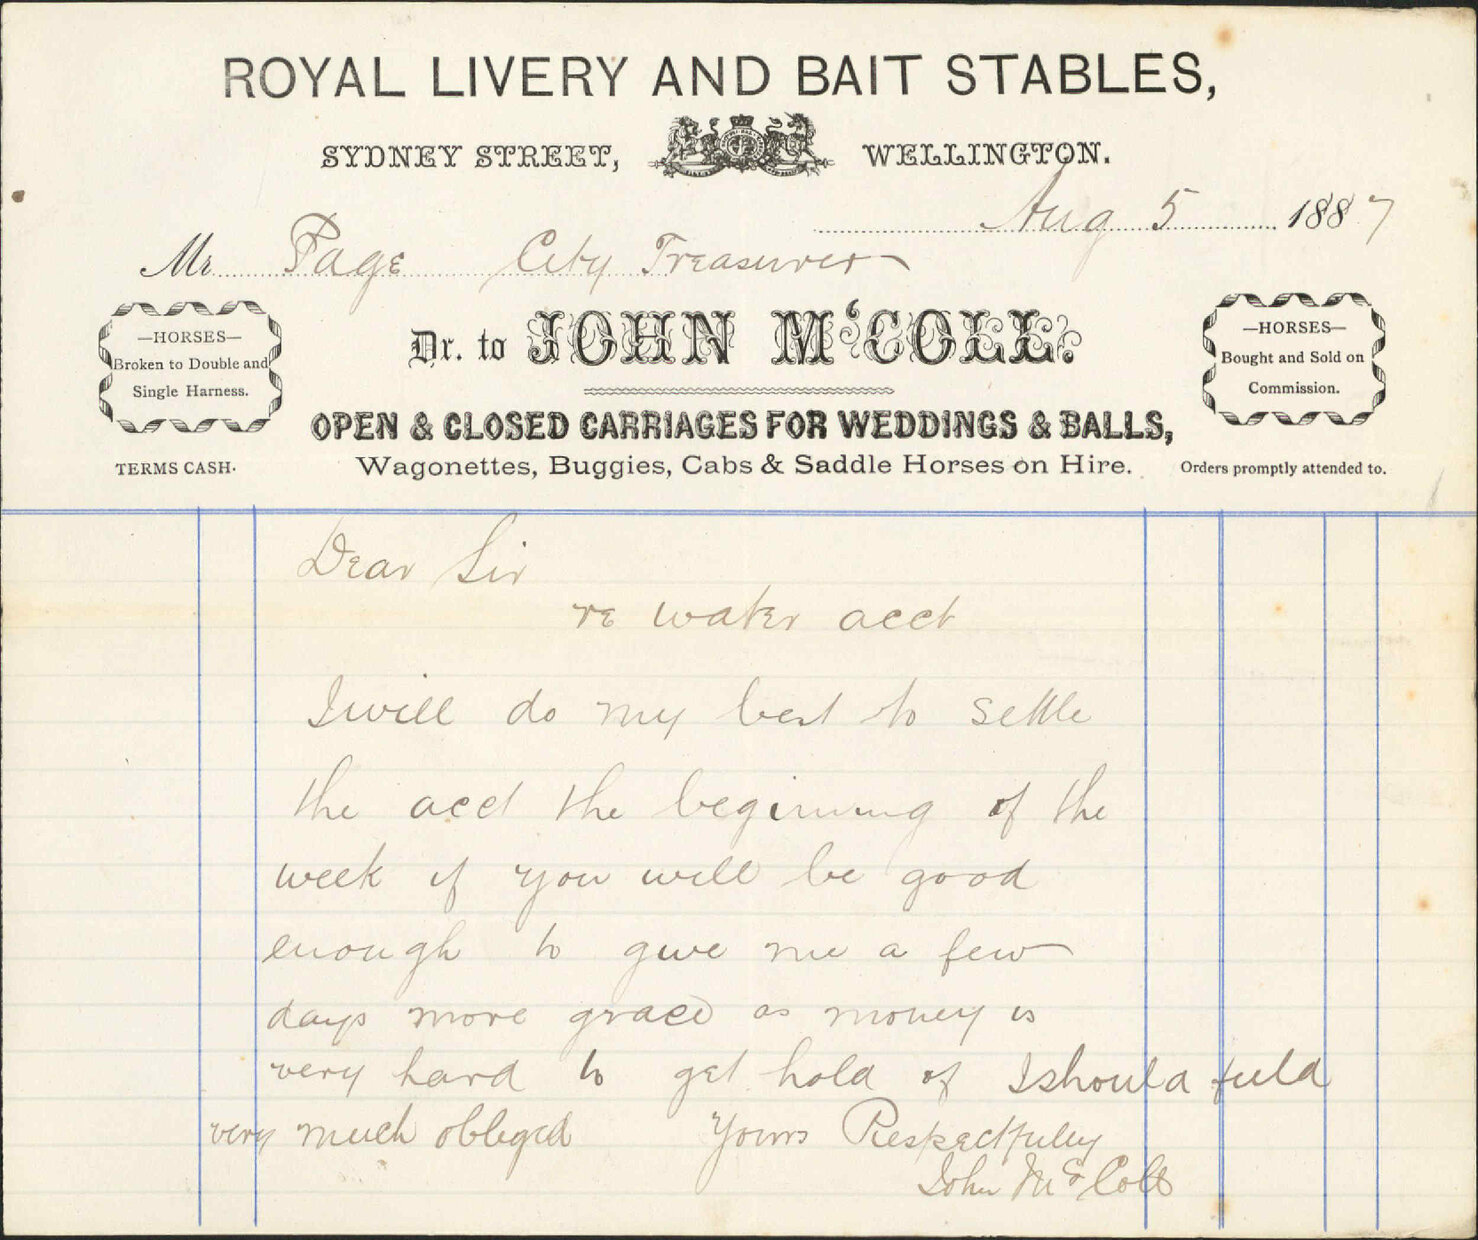 ROYAL LIVERY AND BAIT STABLES,
SYDNEY STREET, WELLINGTON.
Aug 5 1887
Mr Page City Treasurer
—HORSES—
Broken to Double and
Single Harness.
Dr. to JOHN M'COLL.
—HORSES—
Bought and Sold on
Commission.
OPEN & CLOSED CARRIAGES FOR WEDDINGS & BALLS,
TERMS CASH.
Wagonettes, Buggies, Cabs & Saddle Horses on Hire.
Orders promptly attended to.
Dear Sir
re water acct
I will do my best to settle
the acct the beginning of the
week if you will be good
enough to give me a few
days more grace as money is
very hard to get hold of I should feeld
very much obliged Yours Respectfuley
John McColl